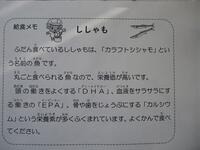 給食メモ
ししゃも
ふだん食べているししゃもは、「カラフトシシャモ」と
いう名前の魚です。
丸ごと食べられる魚なので、栄養価が高いです。
頭の働きをよくする「DHA」、血液をサラサラにす
る働きの「EPA」、骨や歯をじょうぶにする「カルシウ
ム」という栄養素が多くふくまれています。よくかんで食べ
てください。